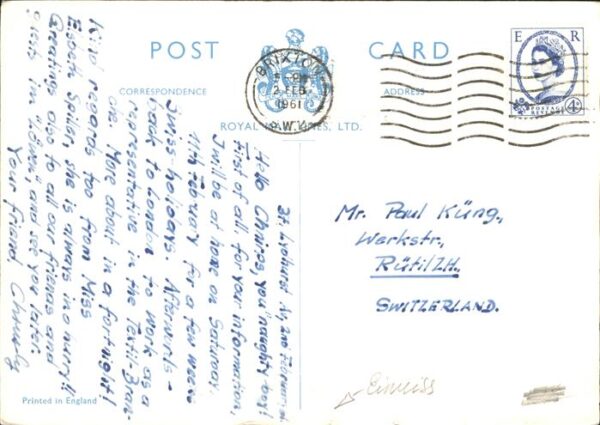 POST CARD
CORRESPONDENCE
ADDRESS
ROYAL LINES, LTD.
BRIXTON
2 FEB
1961
S.W.
E R
POSTAGE
REVENUE
4D
Hello you "naughty boy!
First of all for your information,
I will be at home on Saturday,
11th February for a few weeks
Swiss-holidays. Afterwards -
back to London to work as a
representative in the Textil-Bran-
che. More about in a fortnight!
Kind regards too from Miss
she is always in a hurry!!
Greetings also to all our friends and
girls in and see you later.
Your friend
Mr. Paul Küng,
Werkstr.,
Rüti/ZH.
SWITZERLAND.
Printed in England